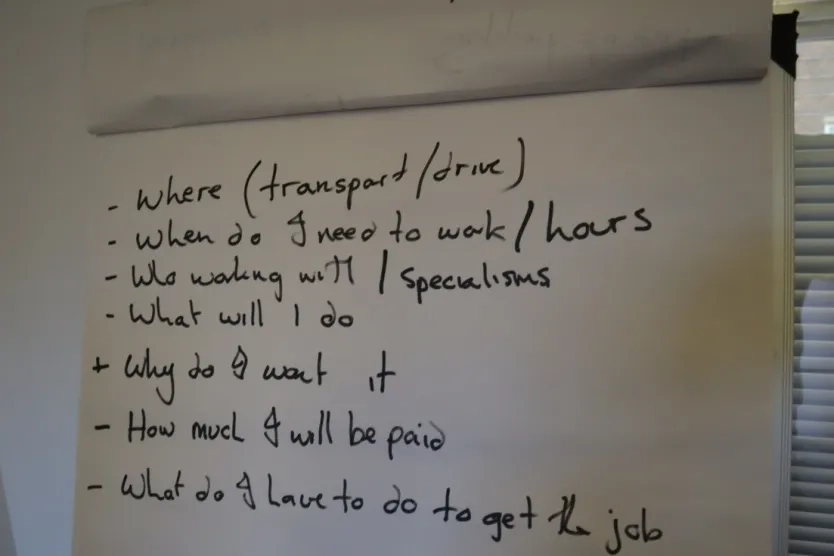 - Where (transport/drive)
- When do I need to work/hours
- Who working with / specialisms
- What will I do
+ Why do I want it
- How much I will be paid
- What do I have to do to get the job